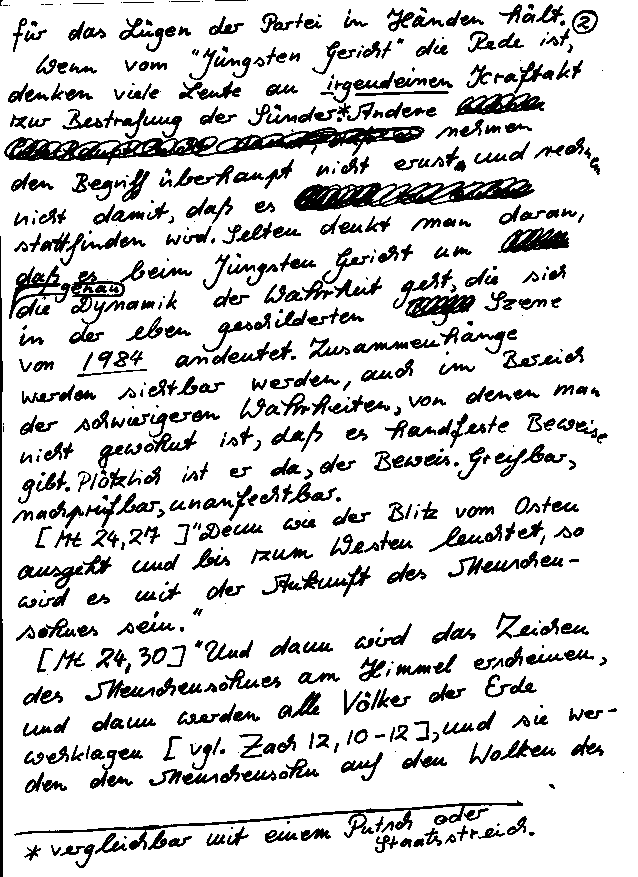 für das Lügen der Partei in Händen hält. ②
Wenn vom "Jüngsten Gericht" die Rede ist,
denken viele Leute an irgendeinen Kraftakt
zur Bestrafung der Sünder.* Andere
nehmen
den Begriff überhaupt nicht ernst, und rechnen
nicht damit, daß es
stattfinden wird. Selten denkt man daran,
daß es beim Jüngsten Gericht um
genau
die Dynamik der Wahrheit geht, die sich
in der eben geschilderten Szene
von 1984 andeutet. Zusammenhänge
werden sichtbar werden, auch im Bereich
der schwierigeren Wahrheiten, von denen man
nicht gewohnt ist, daß es handfeste Beweise
gibt. Plötzlich ist er da, der Beweis. Greifbar,
nachprüfbar, unanfechtbar.
[Mt 24,27] "Denn wie der Blitz vom Osten
ausgeht und bis zum Westen leuchtet, so
wird es mit der Ankunft des Menschen-
sohnes sein."
[Mt 24,30] "Und dann wird das Zeichen
des Menschensohnes am Himmel erscheinen,
und dann werden alle Völker der Erde
wehklagen [vgl. Zach 12, 10-12], und sie wer-
den den Menschensohn auf den Wolken des
* vergleichbar mit einem Putsch oder
Staatsstreich.